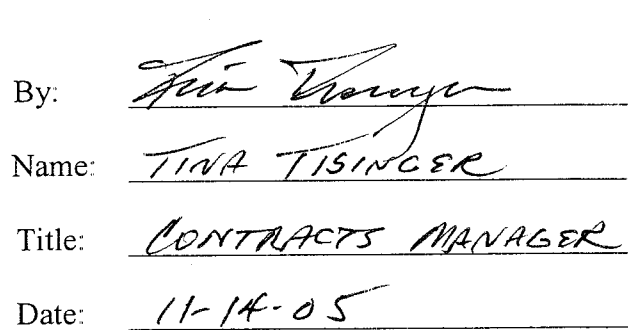 By: Tina Tisinger
Name: TINA TISINGER
Title: CONTRACTS MANAGER
Date: 11-14-05